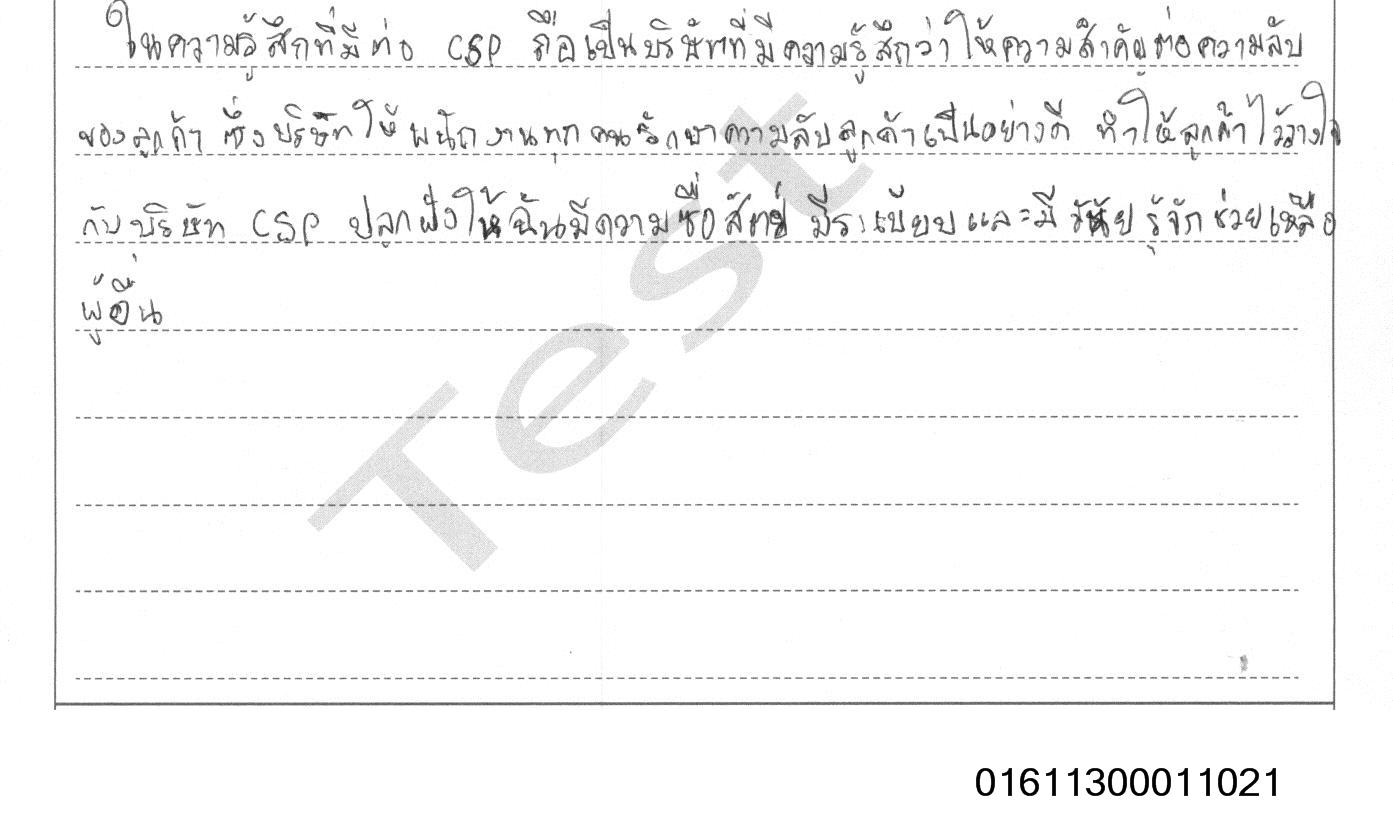 ในความรู้สึกที่มีต่อ CSP ถือเป็นบริษัทที่มีความรู้สึกว่าให้ความสำคัญต่อความลับ
ของลูกค้า ซึ่งบริษัทให้พนักงานทุกคนรักษาความลับลูกค้าเป็นอย่างดี ทำให้ลูกค้าไว้วางใจ
กับบริษัท CSP ปลูกฝังให้ฉันมีความซื่อสัตย์ มีระเบียบและมีวินัย รู้จักช่วยเหลือ
ผู้อื่น
Test
01611300011021